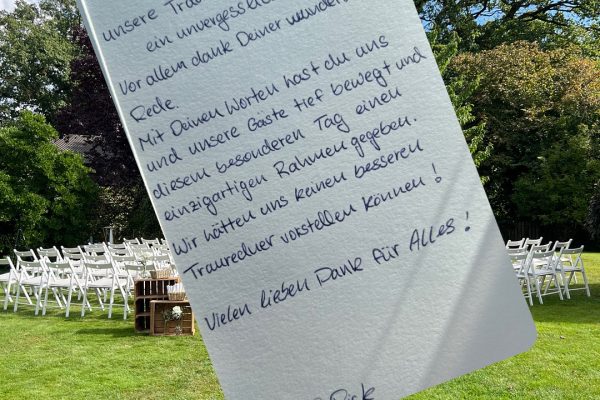 unsere Trau
ein unvergessl
Vor allem dank Deiner wunder
Rede.
Mit Deinen Worten hast du uns
und unsere Gäste tief bewegt und
diesem besonderen Tag einen
einzigartigen Rahmen gegeben.
Wir hätten uns keinen besseren
Trauredner vorstellen können!
Vielen lieben Dank für Alles!
Dirk